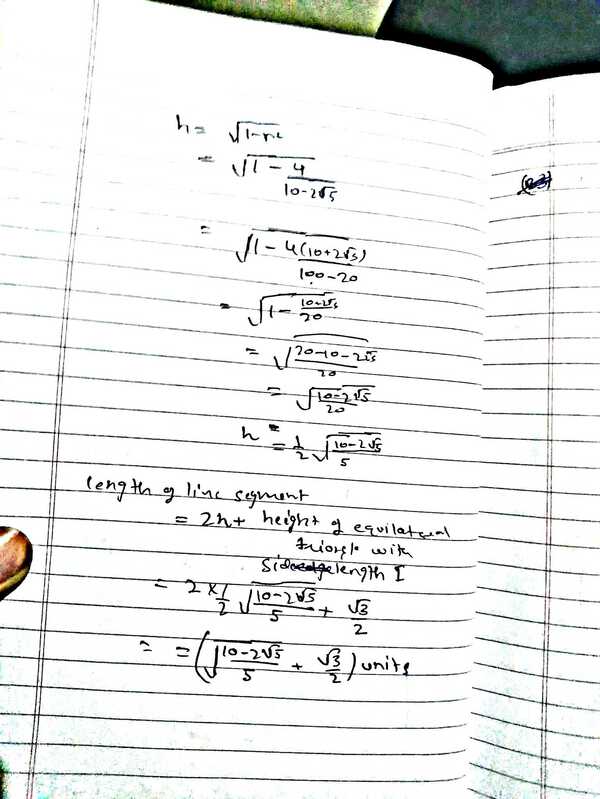 h = √1-r²
= √1 - 4/(10-2√5)
= √1 - 4(10+2√5)/(100-20)
= √1 - (10-2√5)/20
= √(20-10-2√5)/20
= √(10-2√5)/20
h = = 1/2 √(10-2√5)/5
length of line segment
= 2h + height of equilateral
triangle with
side length 1
= 2 × 1/2 √(10-2√5)/5 + √3/2
= = (√(10-2√5)/5 + √3/2) units